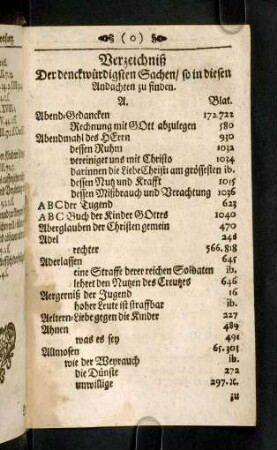 ( o )
Verzeichniß
Der denckwürdigsten Sachen / so in diesen
Andachten zu finden.
A. Blat.
Abend-Gedancken 172.722
Rechnung mit GOtt abzulegen 580
Abendmahl des HErrn 930
dessen Ruhm 1032
vereiniget uns mit Christo 1034
darinnen die Liebe Christi am grössesten ib.
dessen Nutz und Krafft 1035
dessen Mißbrauch und Verachtung 1036
ABC der Tugend 623
ABC Buch der Kinder GOttes 1040
Aberglauben der Christen gemein 470
Adel 248
rechter 566.818
Aderlassen 645
eine Straffe derer reichen Soldaten ib.
lehret den Nutzen des Creutzes 646
Aergerniß der Jugend 16
hoher Leute ist straffbar ib.
Aeltern-Liebe gegen die Kinder 227
Ahnen 489
was es sey 491
Allmosen 65.303
wie der Weyrauch ib.
die Dünste 272
unwillige 297.ꝛc.
zu